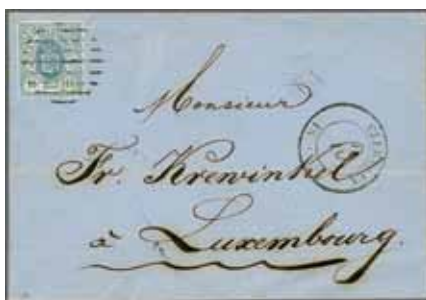 Monsieur
Fr. Krewinkel
à Luxembourg.